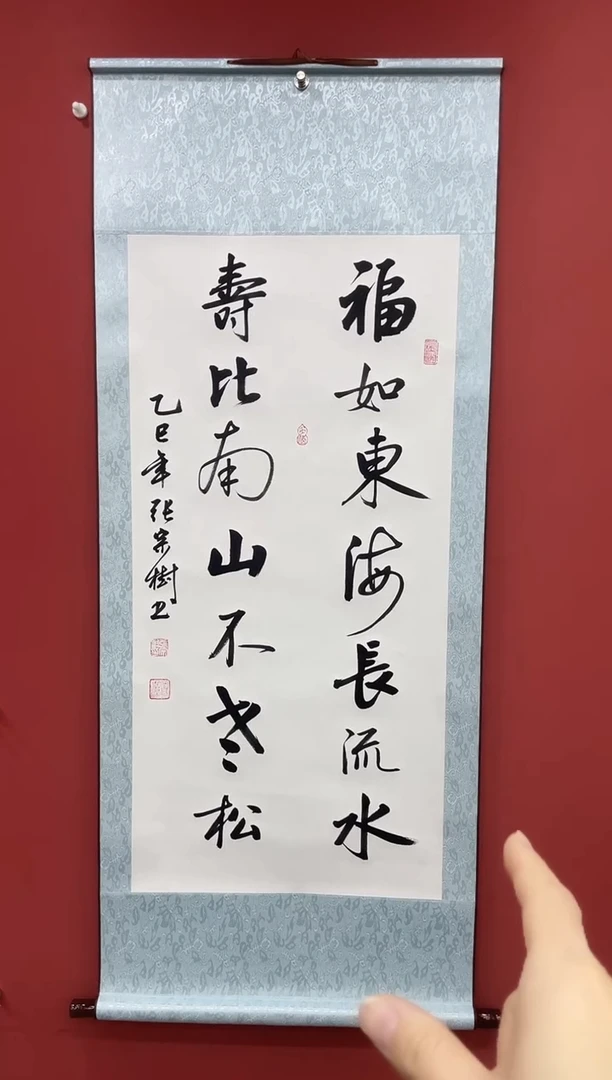 福如東海長流水
壽比南山不老松
乙巳年張宗樹書